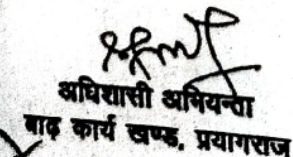 अधिशासी अभियन्ता
बाढ़ कार्य खण्ड, प्रयागराज